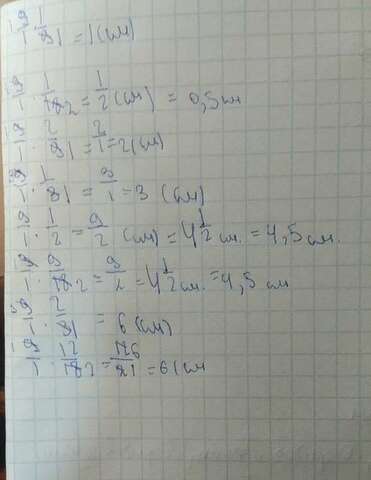 9/1 · 1/9 = 1 (см)
9/1 · 1/18 = 1/2 (см) = 0,5 см
9/1 · 2/9 = 2/1 = 2 (см)
9/1 · 1/3 = 3/1 = 3 (см)
9/1 · 1/2 = 9/2 (см) = 4 1/2 см. = 4,5 см.
9/1 · 9/18 = 9/2 = 4 1/2 см. = 4,5 см
9/1 · 2/3 = 6 (см)
9/1 · 12/18 = 12/2 = 6 (см